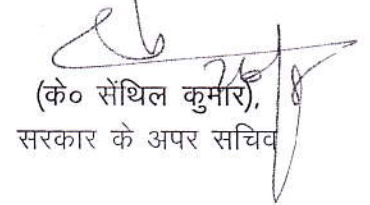 (के० सेंथिल कुमार),
सरकार के अपर सचिव